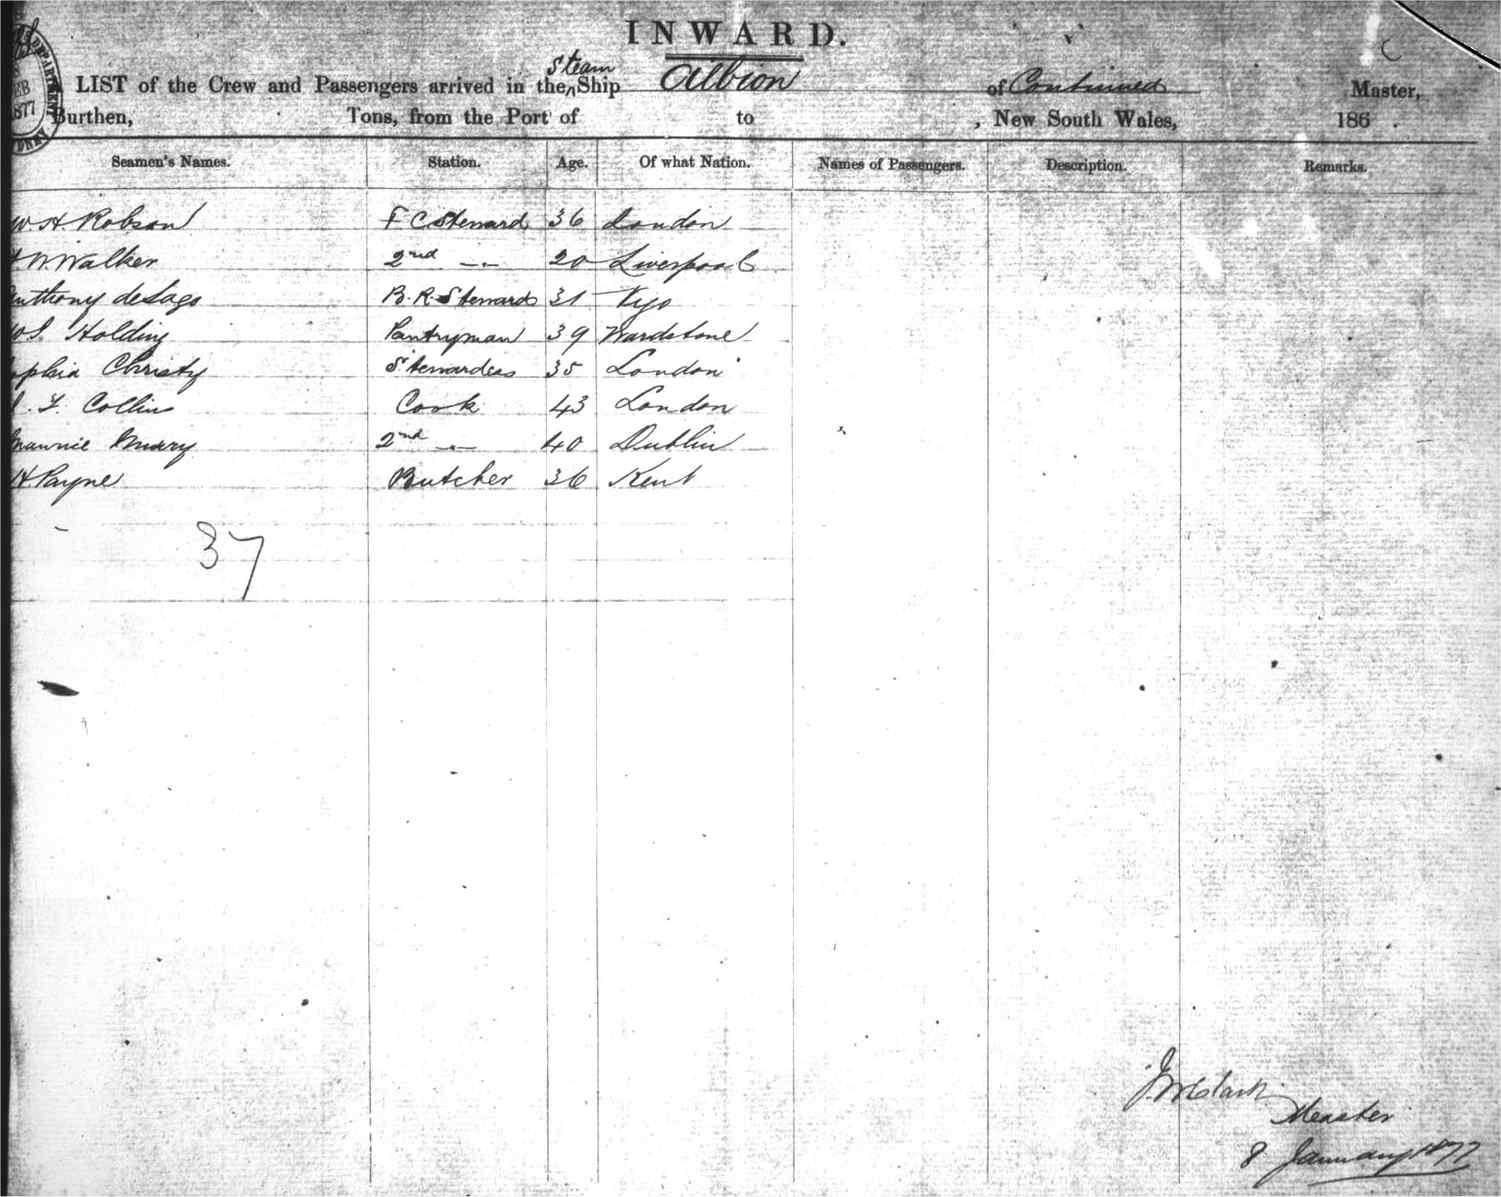 INWARD.
LIST of the Crew and Passengers arrived in the Steam Ship Albion of Continued Master,
Burthen, Tons, from the Port of to , New South Wales, 186 .
Seamen's Names. Station. Age. Of what Nation. Names of Passengers. Description. Remarks.
W. H. Robson F C Steward 36 London
Walker 2nd -"- 20 Liverpool
Anthony deLago B. R. Stewards 31
Holding Pantryman 39
ophia Christy Stewardess 35 London
Collins Cook 43 London
2nd -"- 40 Dublin
H. Payne Butcher 36 Kent
37
Clark
Master
8 January 1877
EB
877